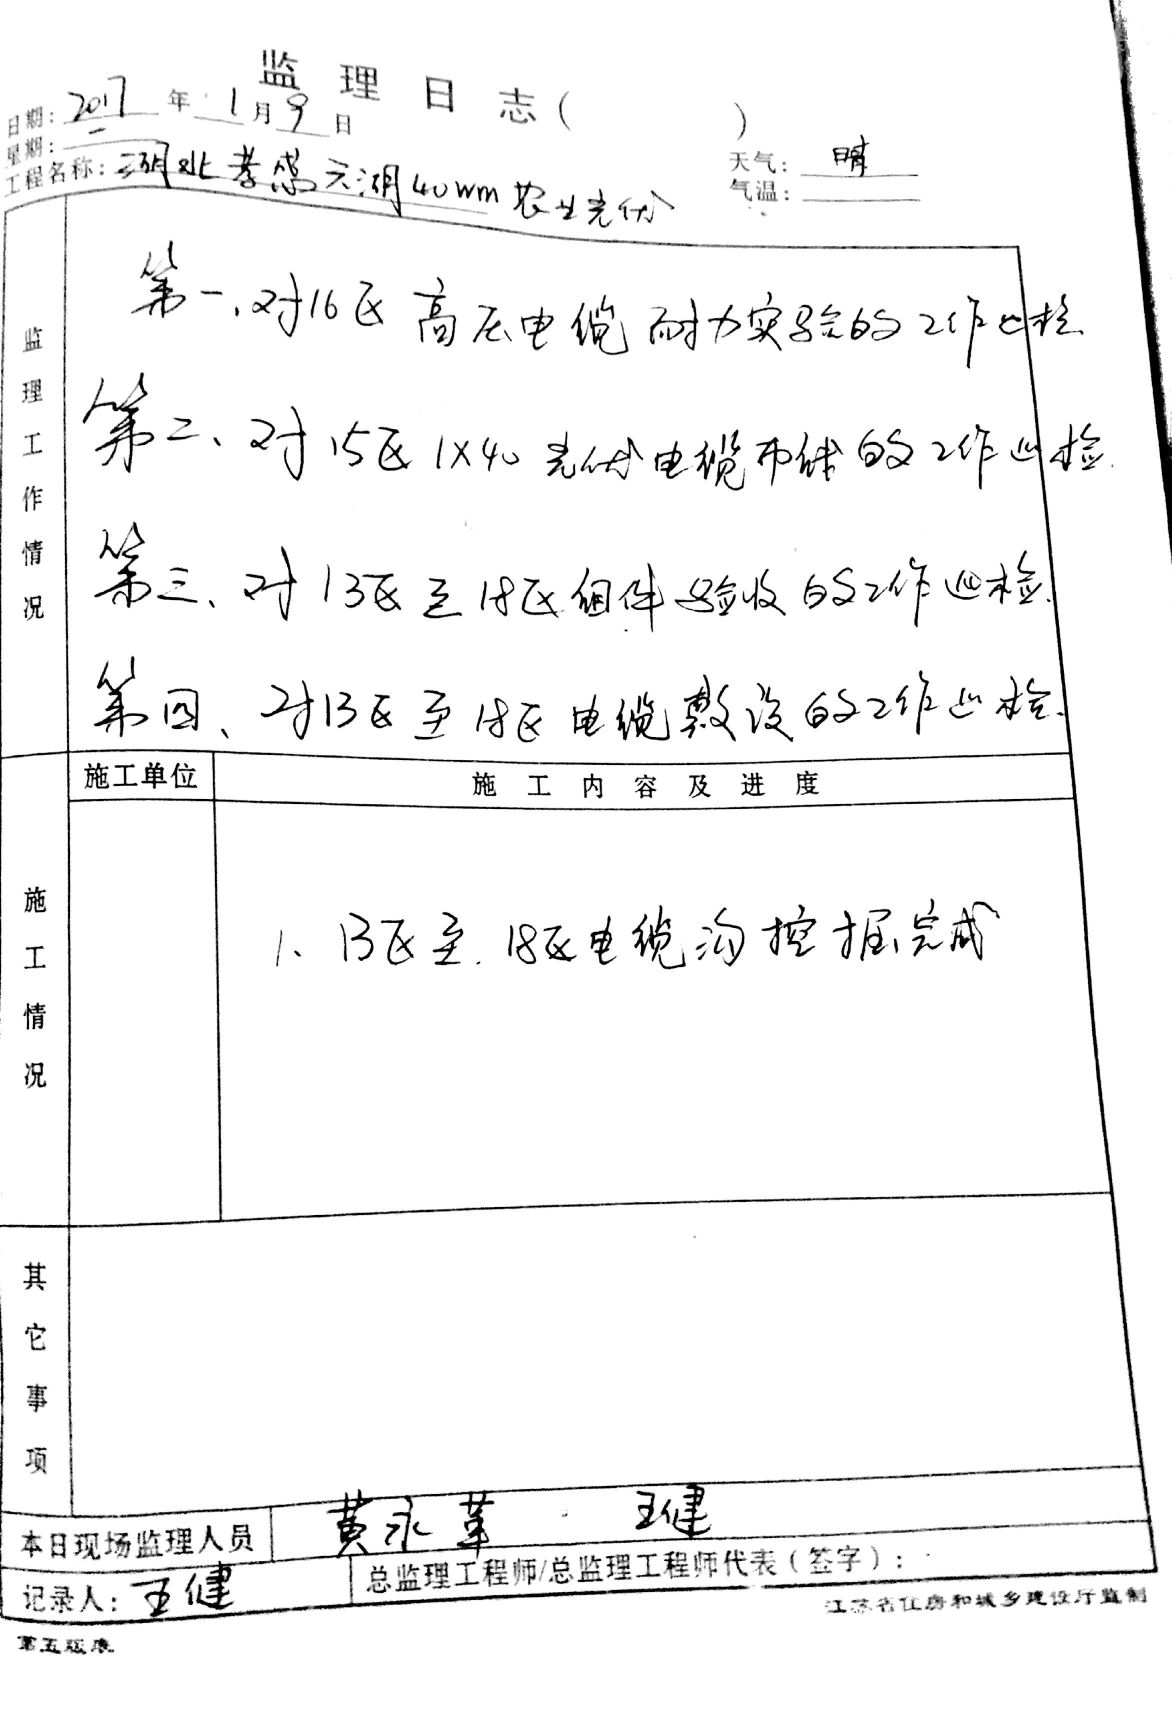 监理日志(        )
日期: 2017 年 1 月 9 日
星期: 一
天气: 晴
工程名称: 湖北孝感云湖40wm农业光伏
气温:
监理工作情况
第一、对16区高压电缆耐力实验的工作巡检
第二、对15区1X40光伏电缆布线的工作巡检.
第三、对13区至18区组件验收的工作巡检.
第四、对13区至18区电缆敷设的工作巡检.
施工单位 施工内容及进度
施工情况
1、13区至18区电缆沟挖掘完成
其它事项
本日现场监理人员 黄永革 王健
记录人: 王健 总监理工程师/总监理工程师代表(签字):
江苏省住房和城乡建设厅监制
第五版表